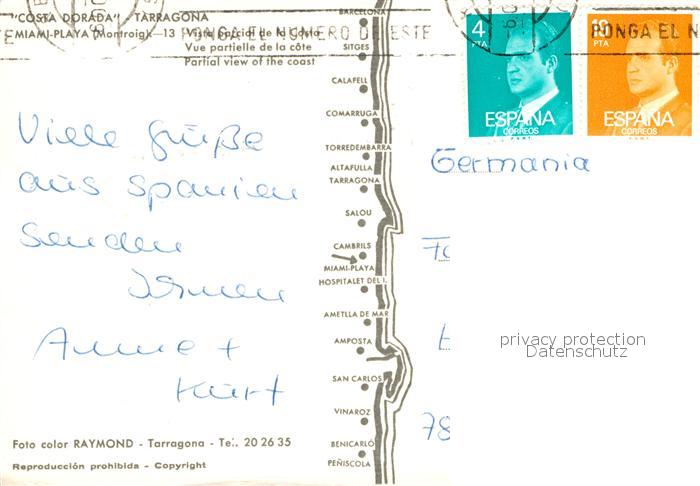 "COSTA DORADA" - TARRAGONA
MIAMI-PLAYA (Montroig).-13 Vista parcial de la Costa
Vue partielle de la côte
Partial view of the coast
PONGA EL NUMERO DE ESTE
PONGA EL N
4 PTA
ESPAÑA
CORREOS
10 PTA
ESPAÑA
CORREOS
Viele Grüße
aus Spanien
senden
Ihnen
Anne +
Kurt
BARCELONA
SITGES
CALAFELL
COMARRUGA
TORREDEMBARRA
ALTAFULLA
TARRAGONA
SALOU
CAMBRILS
MIAMI-PLAYA
HOSPITALET DEL I.
AMETLLA DE MAR
AMPOSTA
SAN CARLOS
VINAROZ
BENICARLÓ
PEÑISCOLA
Germania
78
privacy protection
Datenschutz
Foto color RAYMOND - Tarragona - Tel. 20 26 35
Reproducción prohibida - Copyright